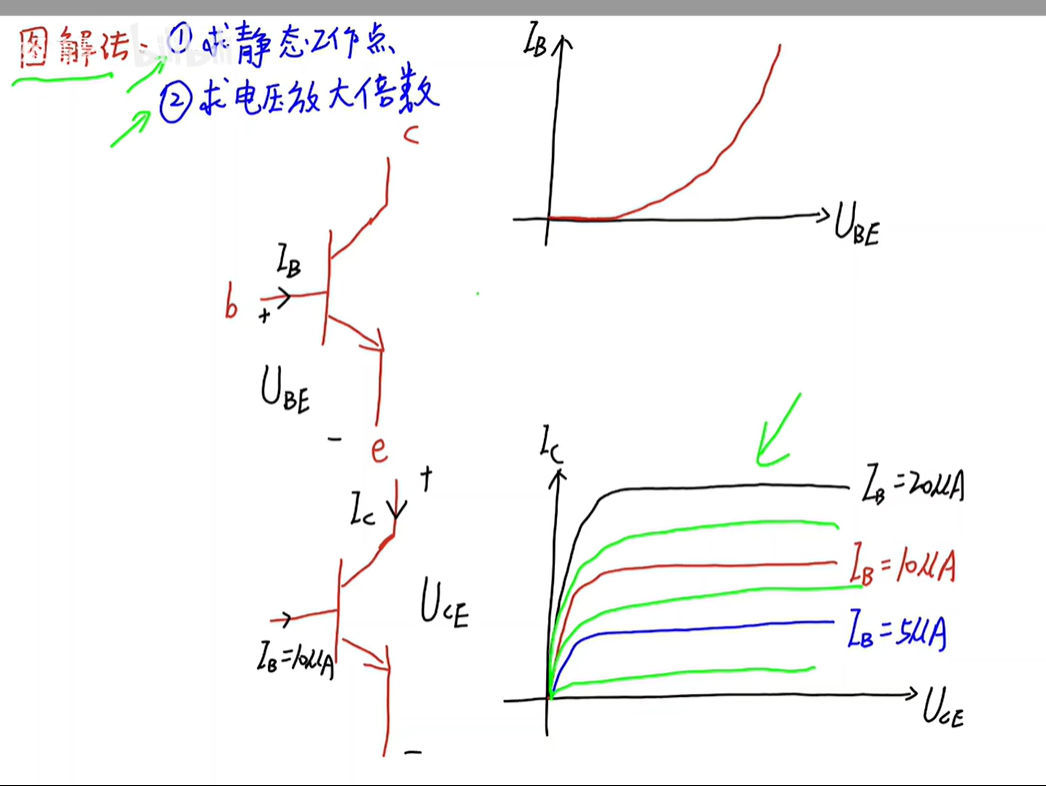 图解法: ①求静态工作点
②求电压放大倍数
I_B
U_BE
c
I_B
b
+
U_BE
-
e
+
I_C
U_CE
I_B=10μA
-
I_C
I_B=20μA
I_B=10μA
I_B=5μA
U_CE